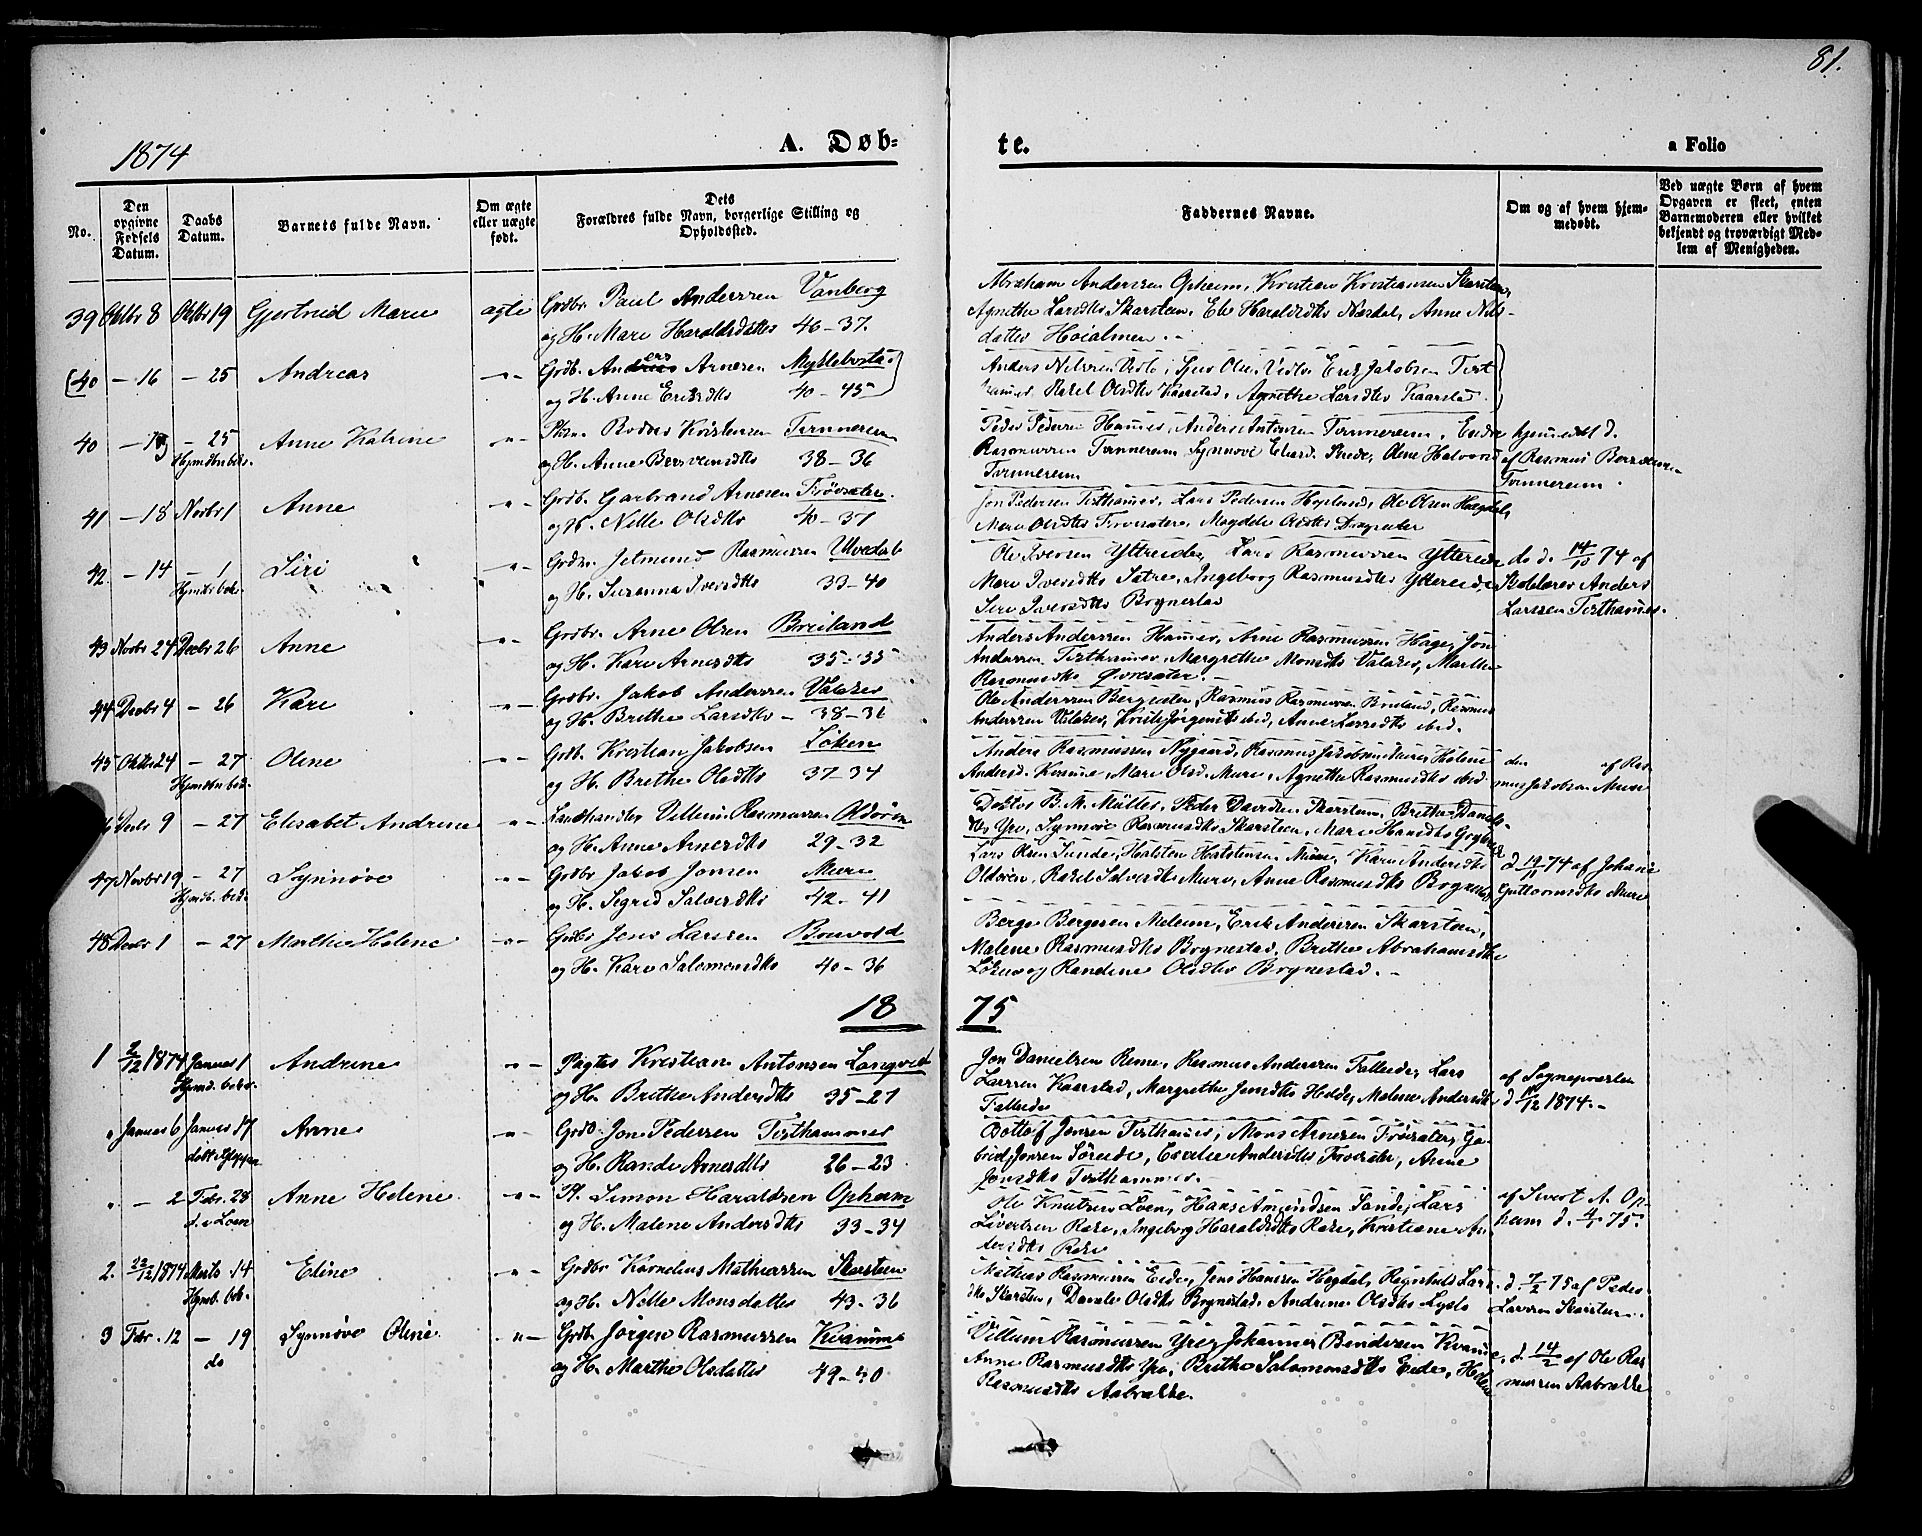 81.
1874
A. Døb-
te.
a Folio
No.
Den opgivne Fødsels Datum.
Daabs Datum.
Barnets fulde Navn.
Om ægte eller uægte født.
Dets Forældres fulde Navn, borgerlige Stilling og Opholdssted.
Faddernes Navne.
Om og af hvem hjemmedøbt.
Ved uægte Børn af hvem Opgaven er skeet, enten Barnemoderen eller hvilket bekjendt og troværdigt Medlem af Menigheden.
39 Oktbr 8 Oktbr 19 Gjertrud Marie ægte Grdbr Paul Anderssen Vanberg
og H. Mari Haraldsdatter 40-37.
Abraham Anderssen Opheim, Kristian Kristiansen Skarsten,
Agnethe Larsdtr Skarstein, Eli Haraldsdtr Nesdal, Anne Nils-
datter
(40 - 16 - 25 Andreas -"- Grdb. Anders Arnesen Myklebostad
og H. Anne Eriksdtr 40-45
Anders Nilssen Vedlo, Sjur Olsen Vedlo, Erik Jakobsen Tist
hamer, Rakel Olsdtr Kaarstad, Agnethe Larsdtr Kaarstad.
40 - 13 - 25 Anne Katrine -"- Kristensen Tennereim
Hjemdbn beks.
og H. Anne 38-36
Peder Pedersen Hammer, Anders Antonsen Tennereim, Endre
Rasmussen Tennereim, Synnøve
Tennereim
hjemmedøbt d.
af Rasmus
Tennereim.
41 - 18 Novbr 1 Anne -"- Grdb. Garbrand Arnesen Frøisæter
og H. Nille Olsdtr 40-37
Jon Pedersen Tisthamer, Lars Pedersen Hoplund, Ole Olsen Hægdal,
Mari Olsdtr Frøisæter, Magdeli Olsdtr
42 - 14 - 1 Siri -"- Grdbr. Jetmund Rasmussen Ulvedal
Hjemdb. beks.
og H. Suzanna Iversdtr 33-40
Ole Iversen Yttreide, Lars Rasmussen Yttreide
Mari Iversdtr Sætre, Ingeborg Rasmusdtr Yttreide,
Siri Iversdtr Brynestad
do d. 14/10 74 af
Skolelærer Anders
Larssen Tisthamer.
43 Novbr 24 Decbr 26 Anne -"- Grdbr. Arne Olsen Breiland
og H. Kari Arnesdtr 35-35
Anders Anderssen Hamer, Arne Rasmussen Hage, Jon
Anderssen Tisthamer, Margrethe Monsdtr Valaker, Marthe
Rasmusdtr
44 Decbr 4 - 26 Kari -"- Grdbr. Jakob Anderssen Valaker
og H. Brithe Larsdtr - 38-36
Ole Anderssen Rasmus Rasmussen Breiland, Rasmus
Anderssen Valaker, Kristi Jørgensdtr ibid, Anne Larsdtr ibid.
45 Oktbr 24 - 27 Oline -"- Grdb. Kristian Jakobsen Løken
Hjemdbn bek.
og H. Brithe Olsdtr 37-34
Anders Rasmussen Nygaard, Rasmus Jakobsen Muri, Helene
Andersd. Mari Olsd. Muri, Agnethe Rasmusdtr ibid.
af Ras-
mus Jakobsen Muri
Decbr 9 - 27 Elisabet Andrine -"- Landhandler Villum Rasmussen Oldøren
og H. Anne Arnesdtr 29-32
Doktor B. M. Müller, Peder Davidsen Skarstein, Brithe Daniels-
dtr Yri, Synnøve Rasmusdtr Skarstein, Mari Hansdtr
47 Novbr 19 - 27 Synnøve -"- Grdbr Jakob Jonsen Muri
Hjemb. bek.
og H. Sigrid Salversdtr 42-41
Lars Olsen Sunde, Halsten Halstensen Muri, Kari Andersdtr
Oldøren, Rakel Salversdtr Muri, Anne Rasmusdtr Brynestad
d 19/11 74 af Johane
Guttormsdtr Muri
48 Decbr 1 - 27 Marthe Helene -"- Grdbr Jens Larssen Bouvold
og H. Kari Salomonsdtr 40-36
Berge Bergesen Melheim, Erik Anderssen Skarstein,
Malene Rasmusdtr Brynestad, Brithe Abrahamsdtr
Løken og Randine Olsdtr Brynestad. -
18 75
1 2/12 1874 Januar 1 Andrine -"- Pagter Kristian Antonsen Langvid
Hjemd. beks.
og H. Brithe Andersdtr 35-27
Jon Danielsen Reme, Rasmus Anderssen Falleide, Lars
Larssen Kaarstad, Margrethe Jensdtr Hilde, Malene Andersdtr
Falleide
af Sognepræsten
d 11/12 1874.-
" Januar 6 Januar 17 Anne -"- Grdb. Jon Pedersen Tisthammer
døbt i Gloppen
og H. Randi Arnesdtr 26-23
Bottolf Jonsen Tisthamer, Mons Arnesen Frøisæter, Ga-
briel Jonsen Søreide, Andersdtr Frøisæter, Anne
Jonsdtr Tisthammer.-
" - 2 Febr. 28 Anne Helene -"- Pl. Simon Haraldsen Opheim
d. i Loen
og H. Malene Andersdtr 33-34
Ole Knutsen Loen, Hans Amundsen Sande, Lars
Sivertsen Rake, Ingeborg Haraldsdtr Rake, Kristiane An-
dersdtr Rake
af Sivert A. Op-
heim d. 4/1 75.
2. 22/12 1874 Marts 14 Eline -"- Grdbr Kornelius Mathiassen Skarstein
Hjemb. bek.
og H. Nille Monsdatter 43-36
Mathias Rasmussen Eide, Jens Hansen Hægdal, Ragnhild Lars-
dtr Skarsten, Danele Olsdtr Brynestad, Andrine Olsdtr
d. 7/2 75 af Peder
Larssen Skarsten.
3 Febr. 12 - 19 Synnøve Oline -"- Grdb. Jørgen Rasmussen Kvamme
do
og H. Marthe Olsdatter 49-40
Villum Rasmussen Yri, Johannes Bendixen Kvamme,
Anne Rasmusdtr Yri, Brithe Salomonsdtr Eide, Helene
Rasmusdtr Aabrekke.
d. 14/2 af Ole Ras-
mussen Aabrekke